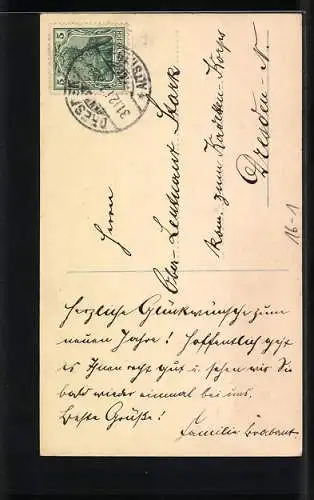 Herrn
Ober-Leutnant Stark
kom. zum Kadetten-Korps
Dresden-N.
16-1
Herzliche Glückwünsche zum
neuen Jahre! Hoffentlich geht
es Ihnen recht gut u. sehen wir Sie
bald wieder einmal bei uns.
Beste Grüße!
Familie Brabant.
5
5
DRESDEN
ALTST.
31.12.